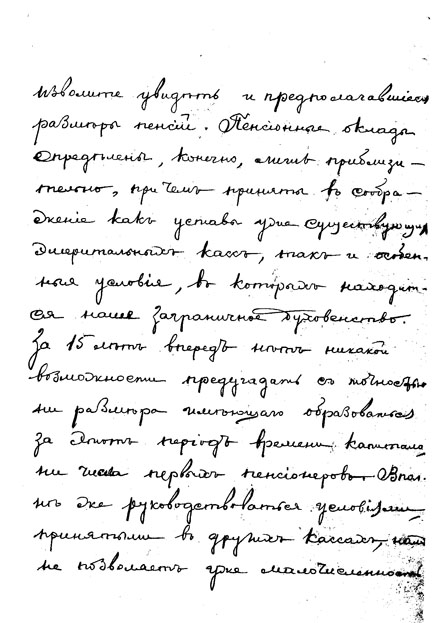 изволите увидѣть и предполагавшіеся
размѣры пенсій. Пенсіонные оклады
опредѣлены, конечно, лишь приблизи-
тельно, при чемъ приняты въ сообра-
женіе какъ уставы уже существующихъ
эмеритальныхъ кассъ, такъ и особен-
ныя условія, въ которыхъ находит-
ся наше заграничное духовенство.
За 15 лѣтъ впередъ нѣтъ никакой
возможности предугадать съ точностью
ни размѣра имѣющаго образоваться
за этотъ періодъ времени капитала,
ни числа первыхъ пенсіонеровъ. Впол-
нѣ же руководствоваться условіями,
принятыми въ другихъ кассахъ, намъ
не позволяетъ уже малочисленность